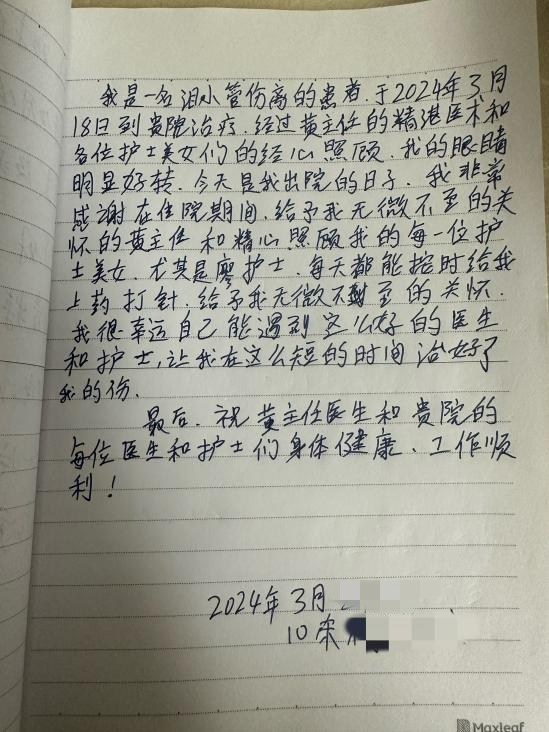 我是一名泪小管伤离的患者.于2024年3月
18日到贵院治疗.经过黄主任的精港医术和
各位护士美女们的经心照顾.我的眼睛
明显好转.今天是我出院的日子.我非常
感谢在住院期间.给予我无微不至的关
怀的黄主任和精心照顾我的每一位护
士美女.尤其是廖护士.每天都能按时给我
上药打针.给予我无微不至的关怀.
我很幸运自己能遇到这么好的医生
和护士,让我在这么短的时间治好了
我的伤.
最后.祝黄主任医生和贵院的
每位医生和护士们身体健康、工作顺
利!
2024年3月
10床
Maxleaf